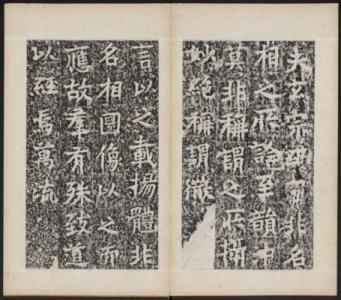 夫玄宗幽寂非名
相之所詮至韻冲
莫非稱謂之所攝
妙絕稱謂微
言以之載揚體非
名相圖像以之而
應故羣有殊致道
以經焉萬流